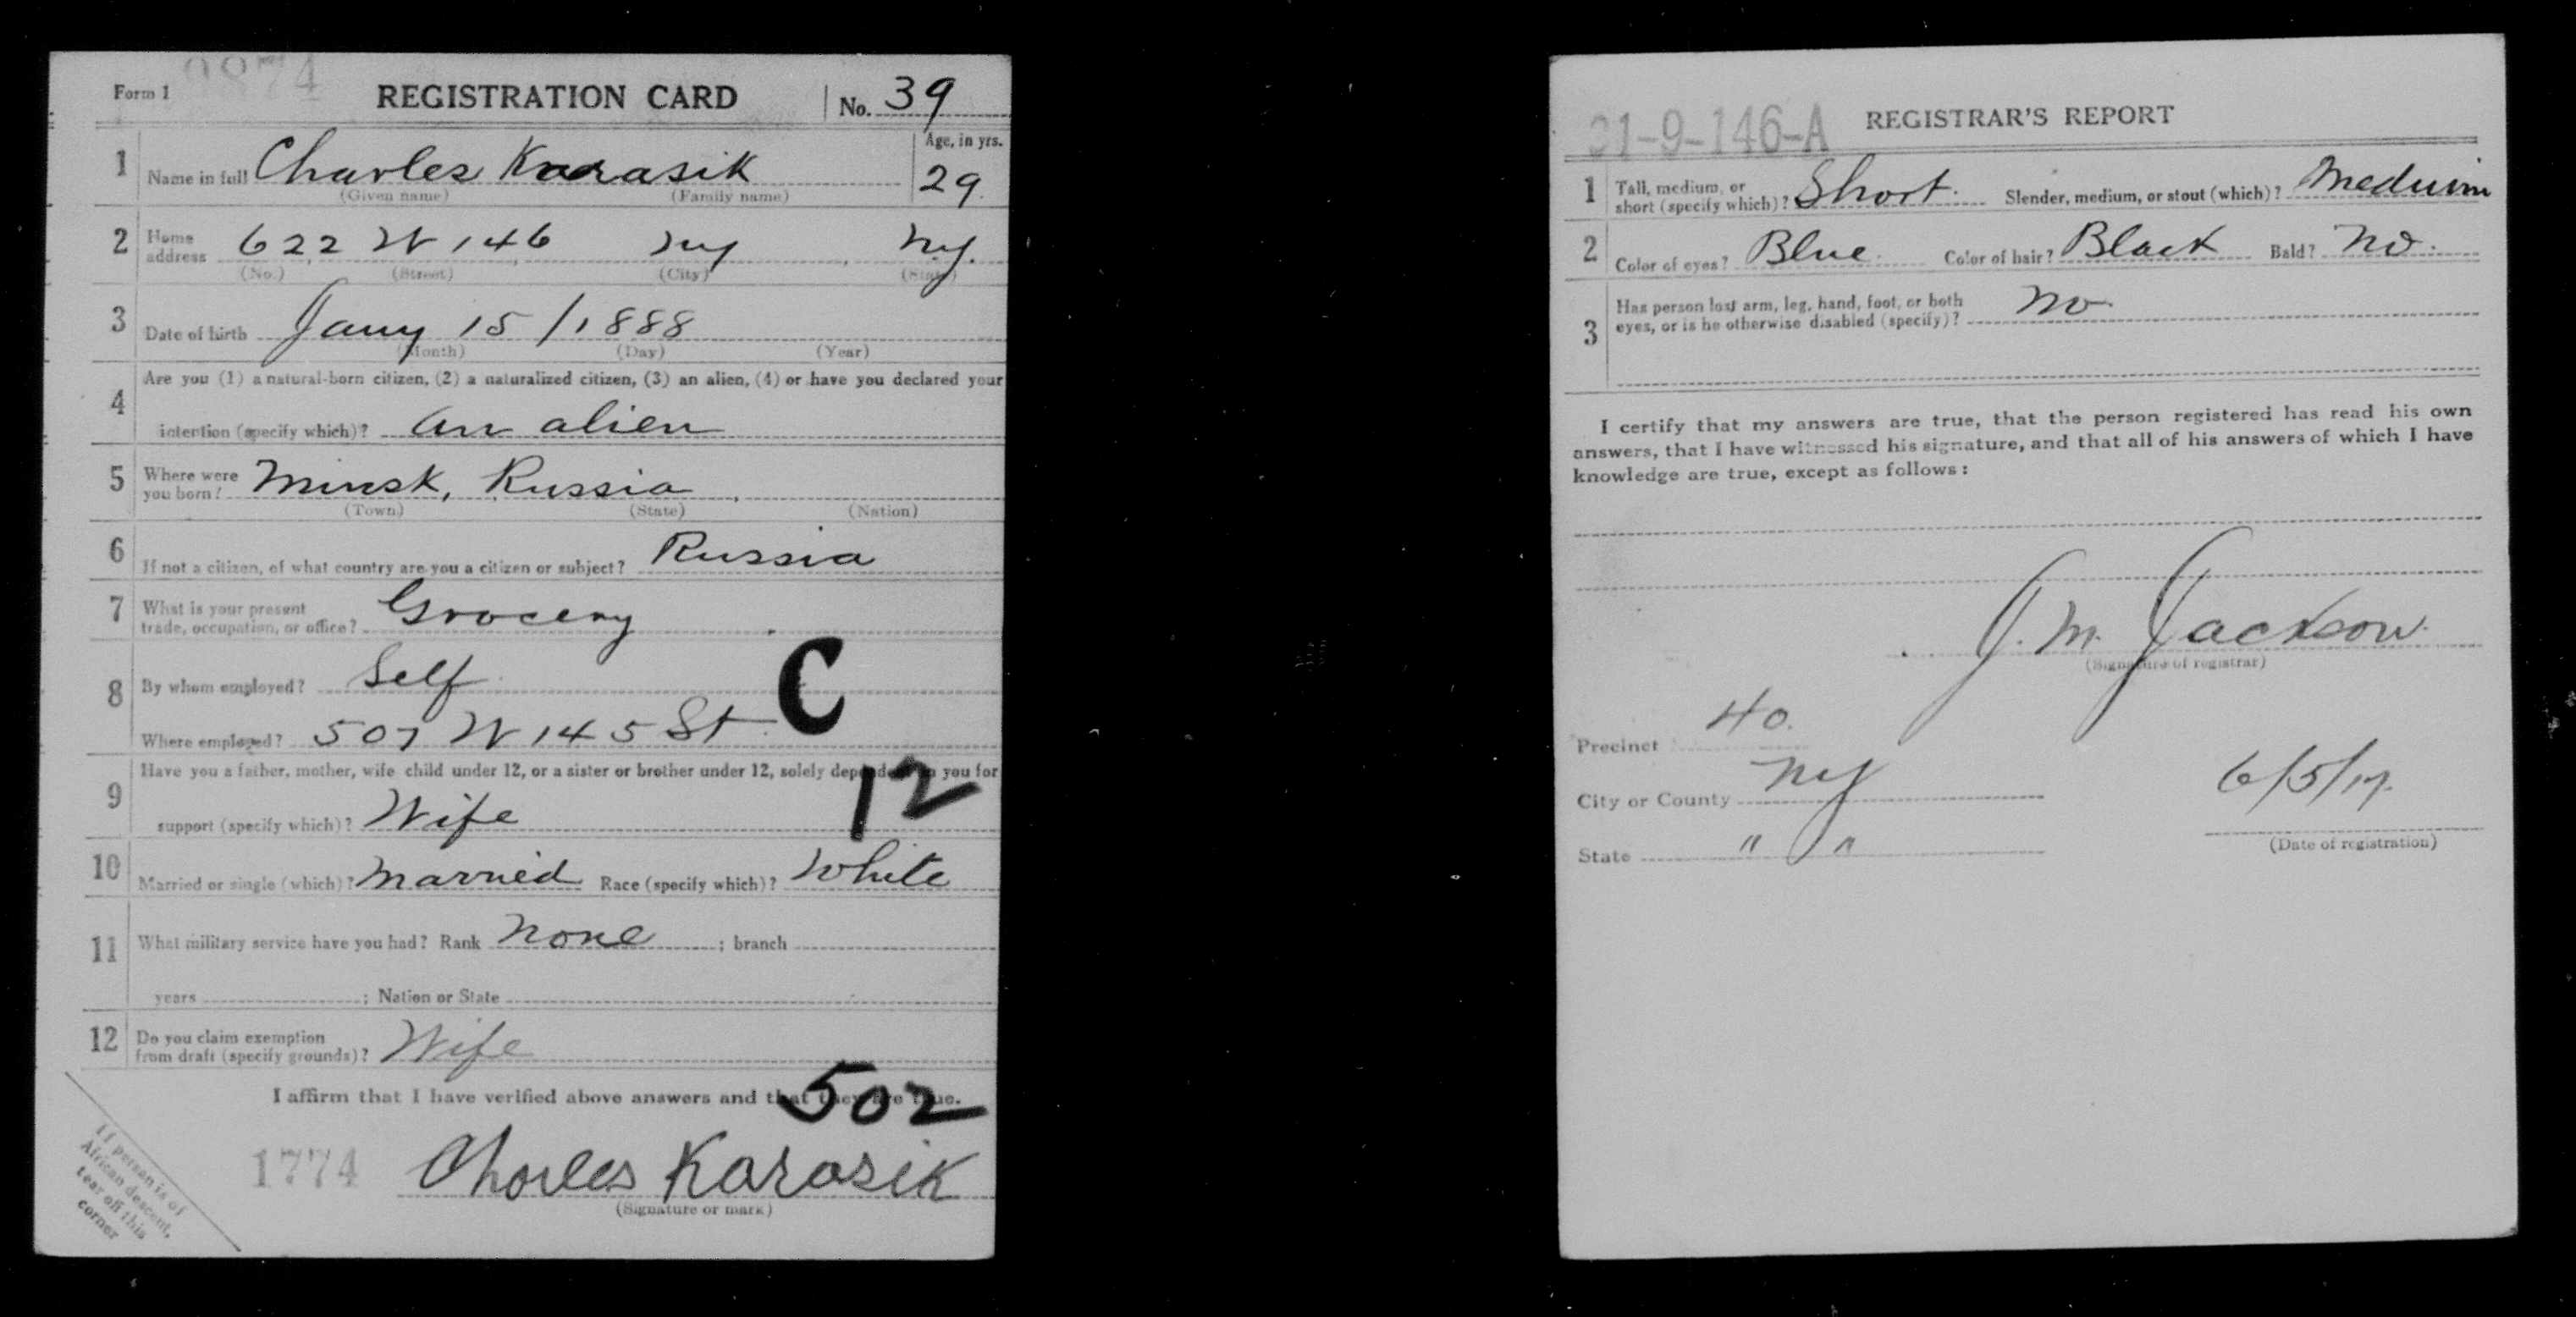 9874
Form 1 REGISTRATION CARD No. 39
1 Name in full Charles Karasik Age, in yrs. 29
(Given name) (Family name)
2 Home address 622 W 146 NY N.Y.
(No.) (Street) (City) (State)
3 Date of birth Jany 15 / 1888
(Month) (Day) (Year)
4 Are you (1) a natural-born citizen, (2) a naturalized citizen, (3) an alien, (4) or have you declared your
intention (specify which)? An alien
5 Where were you born? Minsk, Russia
(Town) (State) (Nation)
6 If not a citizen, of what country are you a citizen or subject? Russia
7 What is your present trade, occupation, or office? Grocery
8 By whom employed? Self
C
Where employed? 507 W 145 St
9 Have you a father, mother, wife child under 12, or a sister or brother under 12, solely dependent on you for
12
support (specify which)? Wife
10 Married or single (which)? Married Race (specify which)? White
11 What military service have you had? Rank None ; branch
years ; Nation or State
12 Do you claim exemption from draft (specify grounds)? Wife
I affirm that I have verified above answers and that they are true.
502
1774 Charles Karasik
(Signature or mark)
If person is of
African descent,
tear off this
corner
31-9-146-A REGISTRAR'S REPORT
1 Tall, medium, or short (specify which)? Short. Slender, medium, or stout (which)? Medium
2 Color of eyes? Blue. Color of hair? Black Bald? No.
3 Has person lost arm, leg, hand, foot, or both
eyes, or is he otherwise disabled (specify)? No
I certify that my answers are true, that the person registered has read his own
answers, that I have witnessed his signature, and that all of his answers of which I have
knowledge are true, except as follows:
J. M. Jackson
(Signature of registrar)
Precinct 40.
City or County NY 6/5/17.
State " "
(Date of registration)